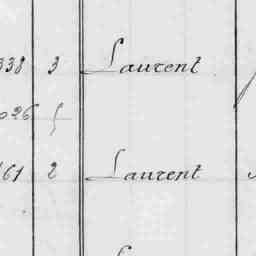 338 3 Laurent
026
161 2 Laurent